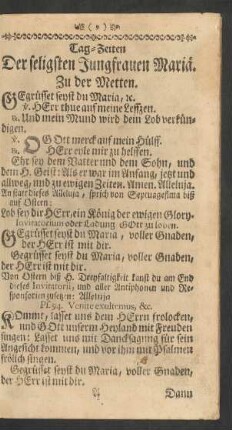 ( 1 )
Tag-Zeiten
Der seligsten Jungfrauen Mariä.
Zu der Metten.
GEgrüsset seyst du Maria, ꝛc.
℣. HErr thue auf meine Leffzen.
℟. Und mein Mund wird dein Lob verkün-
digen.
℣. O GOtt merck auf mein Hülff.
℟. HErr eyle mir zu helffen.
Ehr sey dem Vatter und dem Sohn, und
dem H. Geist: Als er war im Anfang, jetzt und
allweg, und zu ewigen Zeiten. Amen. Alleluja.
An statt dieses Alleluja, sprich von Septuagesima biß
auf Ostern:
Lob sey dir HErr, ein König der ewigen Glory.
Invitatorium oder Ladung GOtt zu loben.
GEgrüsset seyst du Maria, voller Gnaden,
der HErr ist mit dir.
Gegrüsset seyst du Maria, voller Gnaden,
der HErr ist mit dir.
Von Ostern biß H. Dreyfaltigkeit kanst du am End
dieses Invitatorii, und aller Antiphonen und Re-
sponsorien zusetzen: Alleluja
Ps. 94. Venite exultemus, &c.
KOmmt, lasset uns dem HErrn frolocken,
und GOtt unserm Heyland mit Freuden
singen: Lasset uns mit Dancksagung für sein
Angesicht kommen, und vor ihm mit Psalmen
frölich singen.
Gegrüsset seyst du Maria, voller Gnaden,
der HErr ist mit dir.
Dann